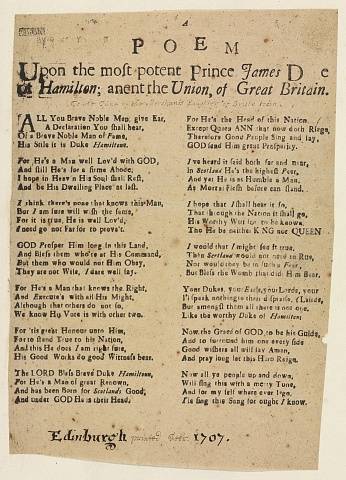 A
POEM
Upon the most potent Prince James D e
of Hamilton; anent the Union, of Great Britain.
ALL You Brave Noble Men, give Ear,
A Declaration You shall hear,
Of a Brave Noble Man of Fame,
His Stile it is Duke Hamiltoun.
For he's a Man well Lov'd with GOD,
And still He's for a firme Abode;
I hope in Heav'n His Soul shall Rest,
and be His Dwelling Place at last.
I think there's none that knows this Man,
But I am sure will wish the same,
For it is true, He is well Lov'd,
I need go not Far for to prove't.
GOD Prosper Him long in this Land,
And Bless them who're at His Command,
But them who would not Him Obey,
They are not Wise, I dare well say.
For He's a Man that knows the Right,
And Execute's with all His Might,
Although that others do not so,
We know His Vote is with other two.
For 'tis great Honour unto Him,
For to stand True to his Nation,
And this He does I am right sure,
His Good Works do good Witness bear.
The LORD Bless Brave Duke Hamiltoun,
For He's a Man of great Renown,
And has been Born for Scotlands Good,
And under GOD He is their Head.
For He's the Head of this Nation
Except Queen ANN that now doth Reign,
Therefore Good People Sing and say,
GOD send Him great Prosperity.
I've heard it said both far and near,
in Scotland He's the highest Peer,
And yet He is as Humble a Man,
As Mortal Flesh before can stand.
I hope that I shall hear it so,
That through the Nation it shall go,
His Worthy Worth for to be known,
Tho He be neither KING nor QUEEN
I would that I might see it true,
Then Scotland would not need to Rue,
Nor would they be in such a Fear,
But Bless the Womb that did Him Bear.
Your Dukes, your Earls, your Lords, your Lairds,
I'l speak nothing to their dispraise,
But amongst them all there is not one,
Like the worthy Duke of Hamiltoun
Now the Grace of GOD, to be his Guide,
And to surround him on every side
Good wishers all will say Aman,
And pray long let this Hero Reign.
Now all ye people up and down,
Will sing this with a merry Tune,
And for my self where ever I go,
I'le sing this Song for ought I know.
Edinburgh printed 1707.